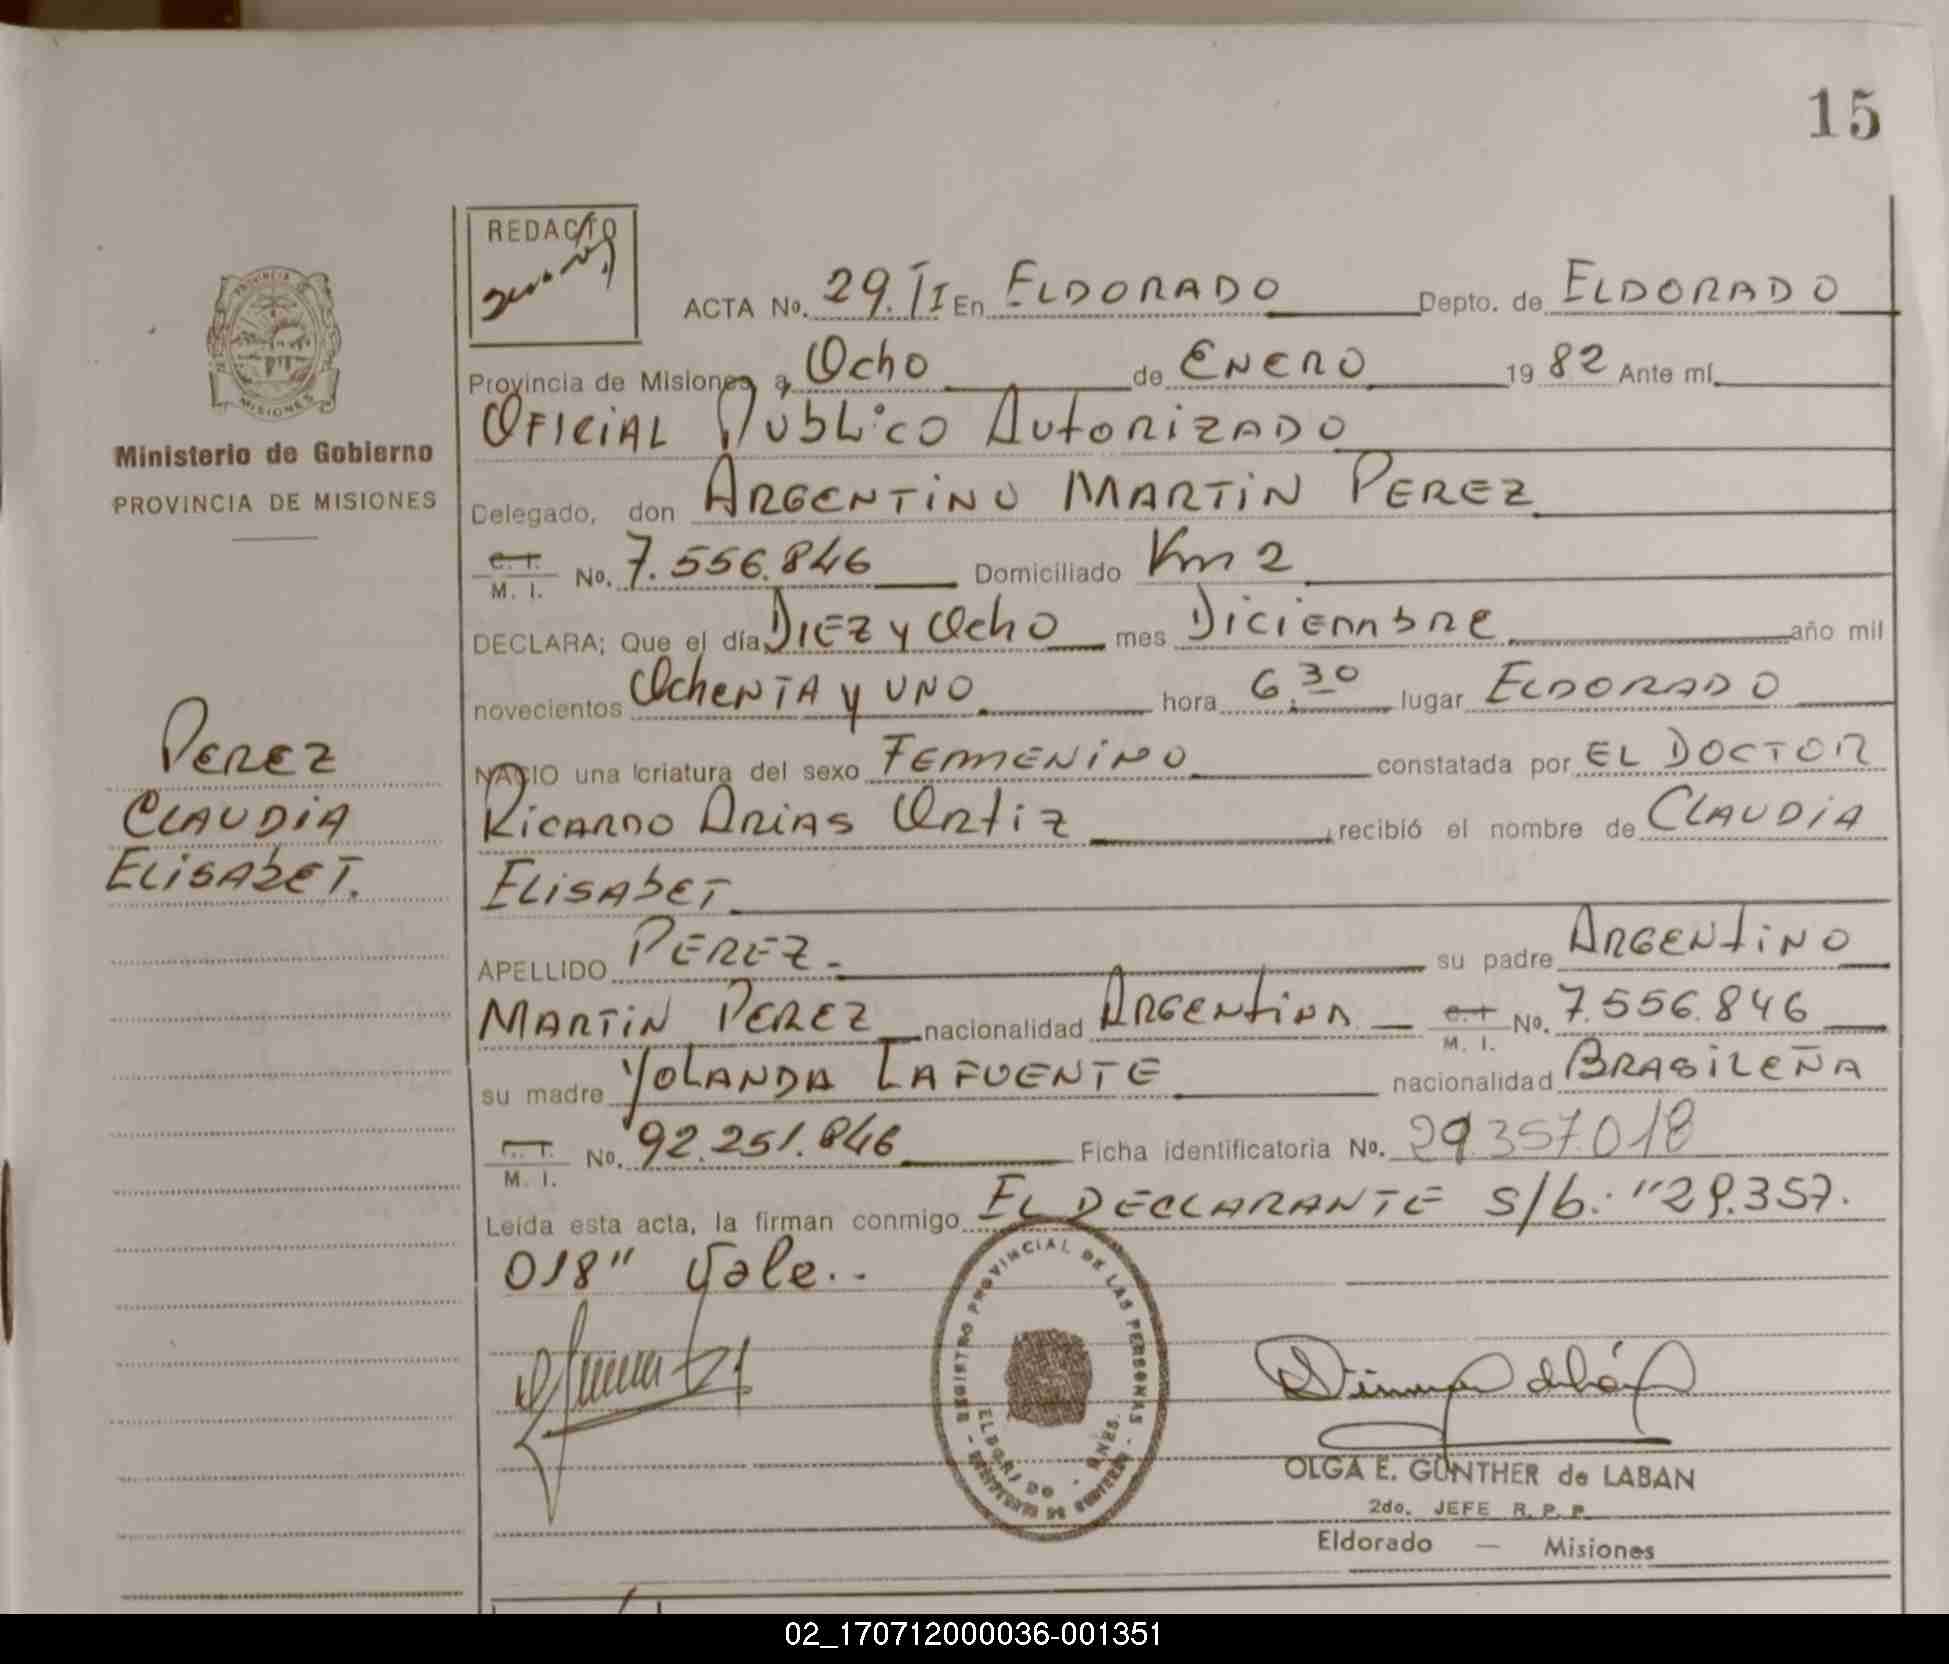 15
REDACTO
PROVINCIA DE
MISIONES
Ministerio de Gobierno
PROVINCIA DE MISIONES
ACTA No. 29.TI En ELDORADO Depto. de ELDORADO
Provincia de Misiones, a Ocho de ENERO 1982 Ante mí
OFICIAL Público Autorizado
Delegado, don ARGENTINO MARTIN PEREZ
C. I.
M. I. No. 7.556.846 Domiciliado Km 2
DECLARA; Que el día DIEZ y Ocho mes Diciembre año mil
novecientos OchENTA y UNO hora 6.30 lugar ELDORADO
NACIO una criatura del sexo FEMENINO constatada por EL DOCTOR
Ricardo Arias Ortiz recibió el nombre de CLAUDIA
ELISABET
APELLIDO PEREZ.- su padre ARGENTINO
MARTIN PEREZ nacionalidad ARGENTINA C. I.
M. I. No. 7.556.846
su madre YOLANDA LAFUENTE nacionalidad BRASILEÑA
C. I.
M. I. No. 92.251.846 Ficha identificatoria No. 29.357.018
Leída esta acta, la firman conmigo EL DECLARANTE S/b: "29.357.
018" Vale..
PEREZ
CLAUDIA
ELISABET.
REGISTRO PROVINCIAL DE LAS PERSONAS - MINISTERIO DE GOBIERNO -
ELDORADO - MNES.
OLGA E. GÜNTHER de LABAN
2do. JEFE R. P. P.
Eldorado — Misiones
02_170712000036-001351